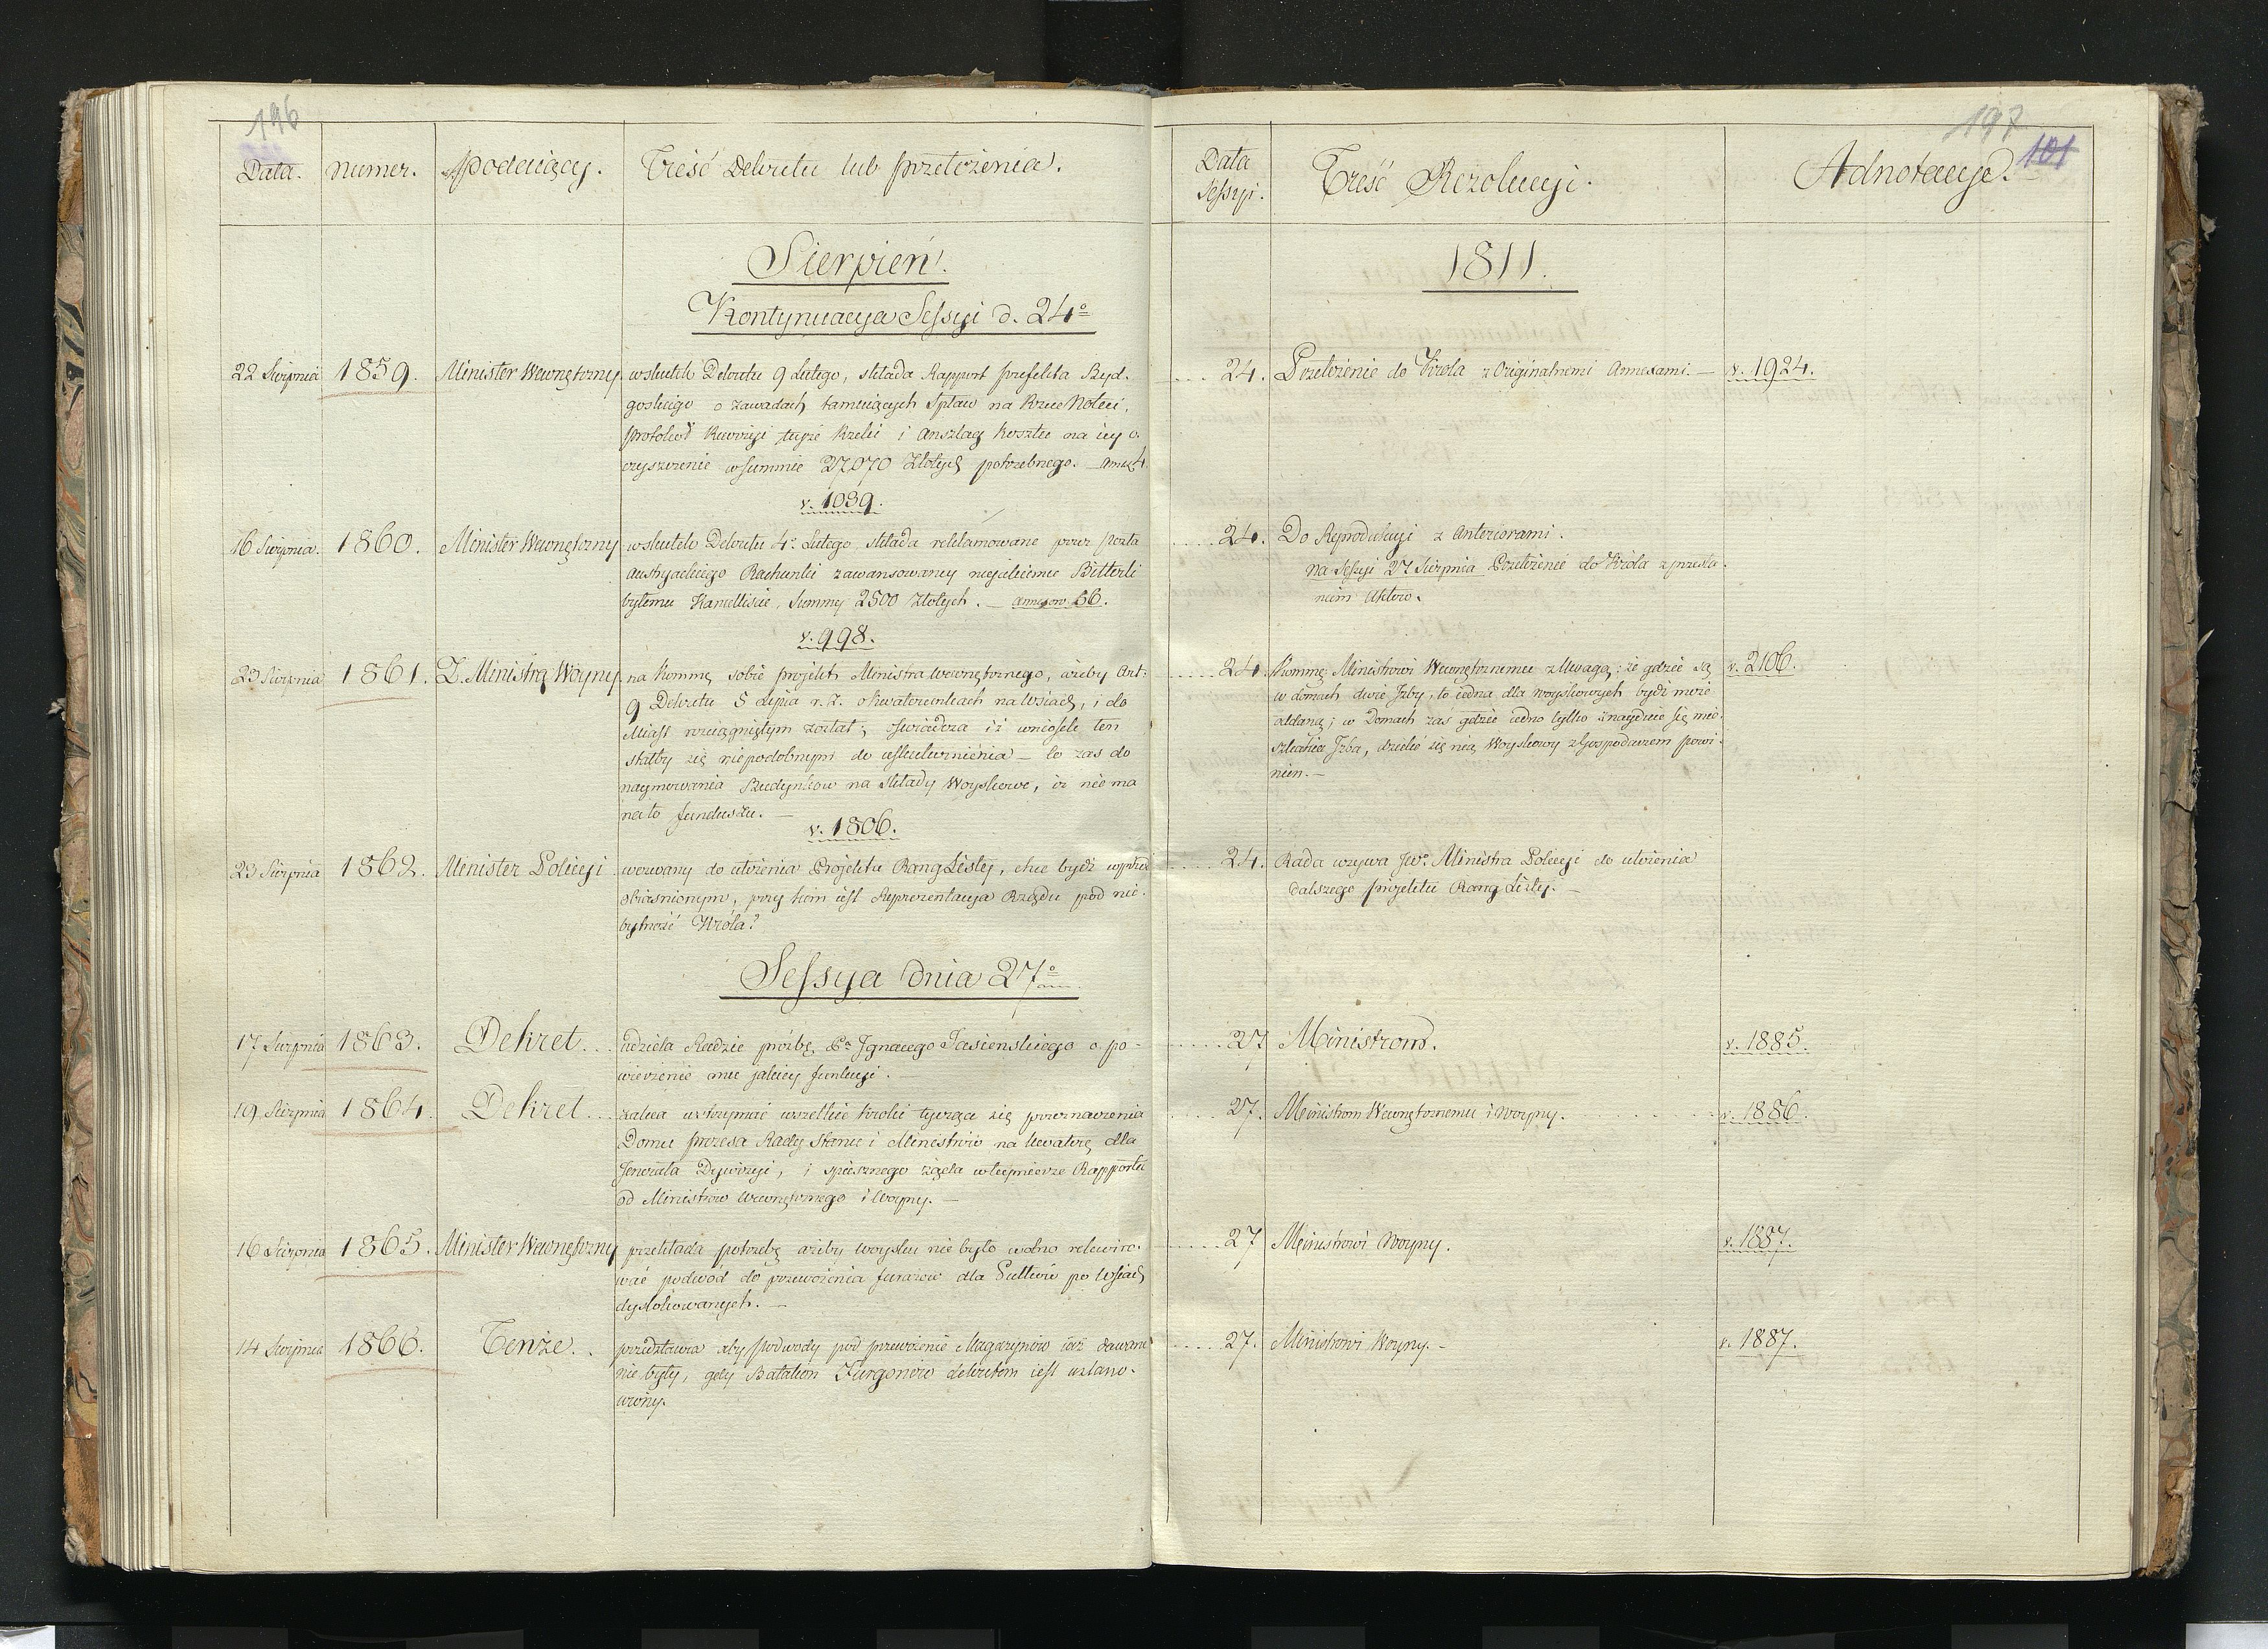 196
Data. Numer. Podaiący. Treść Dekretu lub przełożenia.
Sierpień.
Kontynuacya Sessyi d. 24º
22 Sierpnia 1859. Minister Wewnętrzny wskutek Dekretu 9 Lutego, składa Rapport prefekta Byd-
goskiego o zawadach tamuiących Spław na Rzece Noteci,
protokół Rewizyi teyże Rzeki i Anszlag kosztu na iey o-
czyszczenie w summie 27,070 Złotych potrzebnego. — Annex 4.
v. 1039.
16 Sierpnia. 1860. Minister Wewnętrzny wskutek Dekretu 4º Lutego, składa reklamowane przez posła
Austryackiego Rachunki zawansowaney nieiakiemu Bitterli
byłemu Kancelliście, Summy 2500 Złotych. — annexow 56.
v. 998.
23 Sierpnia 1861. Z. Ministra Woyny na Kommę sobie projekt Ministra Wewnętrznego, ażeby Art:
9 Dekretu 5 Lipca r. z. o kwaterunkach na Wsiach, i do
Miast rozciągniętym został; oswiadcza iż wniosek ten
stałby się niepodobnym do uskutecznienia — co zas do
naymowania Budynkow na Składy Woyskowe, iż nie ma
na to funduszu. —
v. 1806.
23 Sierpnia 1862. Minister Policyi wezwany do ułożenia Projektu Rang Listy, chce bydź wprzód
obiasnionym, przy kim iest Reprezentacya Rządu pod nie-
bytność Króla?
Sessya dnia 27º
17 Sierpnia 1863. Dekret... udziela Radzie prózbę Pª Ignacego Jasienskiego o po-
wierzenie mu jakiey funkcyi.
19 Sierpnia 1864. Dekret... zaleca wstrzymać wszelkie kroki tyczące się przeznaczenia
Domu prezesa Rady Stanu i Ministrów na kwaterę dla
Jenerała Dywizyi, i spiesznego żąda w tey mierze Rapportu
od Ministrów Wewnętrznego i Woyny. —
16 Sierpnia 1865. Minister Wewnętrzny przekłada potrzebę ażeby woysku nie było wolno rekwiro-
wać podwód do przewożenia furażów dla Pułków po Wsiach
dyslokowanych. —
14 Sierpnia 1866. Tenże.. przedstawia aby podwody pod przewożenie Magazynów iuż dawane
nie były, gdy Batalion Furgonów dekretem iest ustano-
wiony.
197
101
Data Sessyi. Treść Rezolucyi. Adnotacye.
1811.
... 24. Przełożenie do Króla z Originalnemi Annexami. — v. 1924.
.... 24. Do Reprodukcyi z Anteriorami.
na Sessyi 27 Sierpnia Przełożenie do Króla z przesła-
niem Aktow.
..... 24. Kommę: Ministrowi Wewnętrznemu z Uwagą: że gdzie są v. 2106.
w domach dwie Izby, to iedna dla woyskowych bydź może
oddaną; w Domach zas gdzie iedno tylko znayduie się mie-
szkalna Izba, dzielić się nią Woyskowy z Gospodarzem powi-
nien. —
..... 24. Rada wzywa JWº Ministra Policyi do ułożenia
dalszego projektu Rang Listy. —
...... 27 Ministrom. v. 1885.
..... 27. Ministrom Wewnętrznemu i Woyny. v. 1886.
..... 27 Ministrowi Woyny. v. 1887.
.... 27. Ministrowi Woyny. - v. 1887.